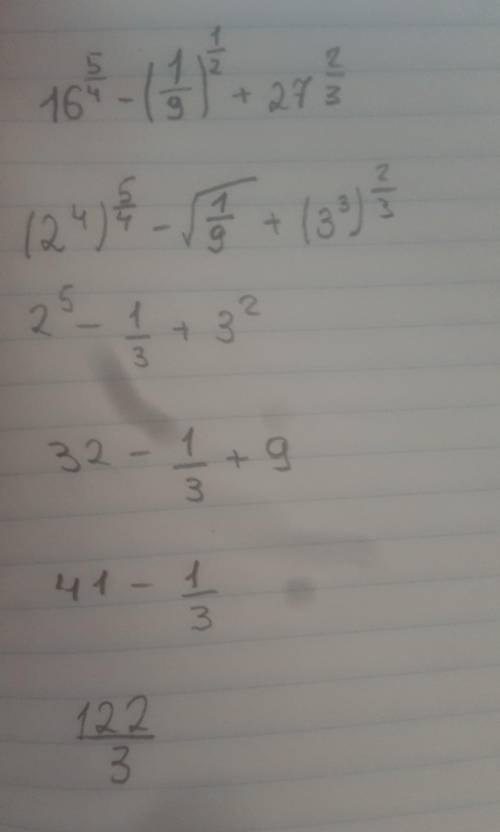 16^(5/4) - (1/9)^(1/2) + 27^(2/3)
(2^4)^(5/4) - √(1/9) + (3^3)^(2/3)
2^5 - 1/3 + 3^2
32 - 1/3 + 9
41 - 1/3
122/3